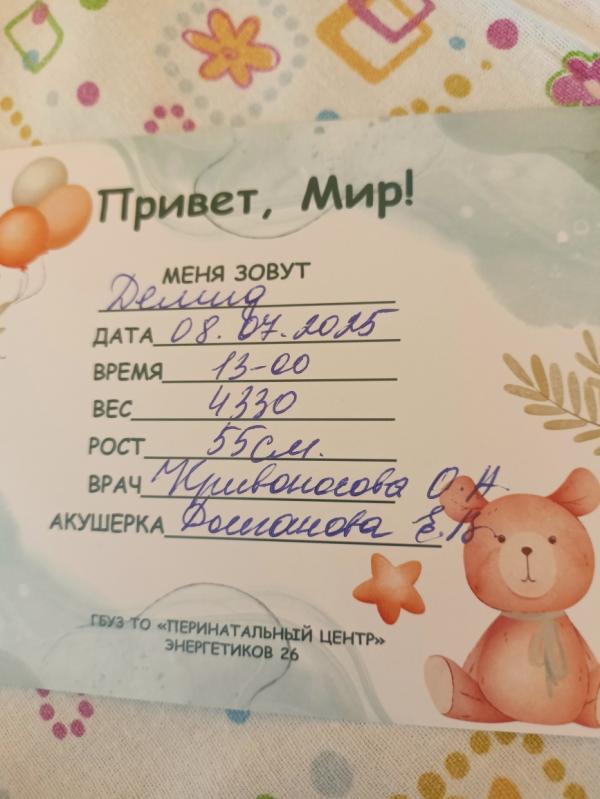 Привет, Мир!
МЕНЯ ЗОВУТ
Демид
ДАТА 08.07.2025
ВРЕМЯ 13-00
ВЕС 4330
РОСТ 55см.
ВРАЧ Кривоносова О.А
АКУШЕРКА Е.В
ГБУЗ ТО «ПЕРИНАТАЛЬНЫЙ ЦЕНТР»
ЭНЕРГЕТИКОВ 26